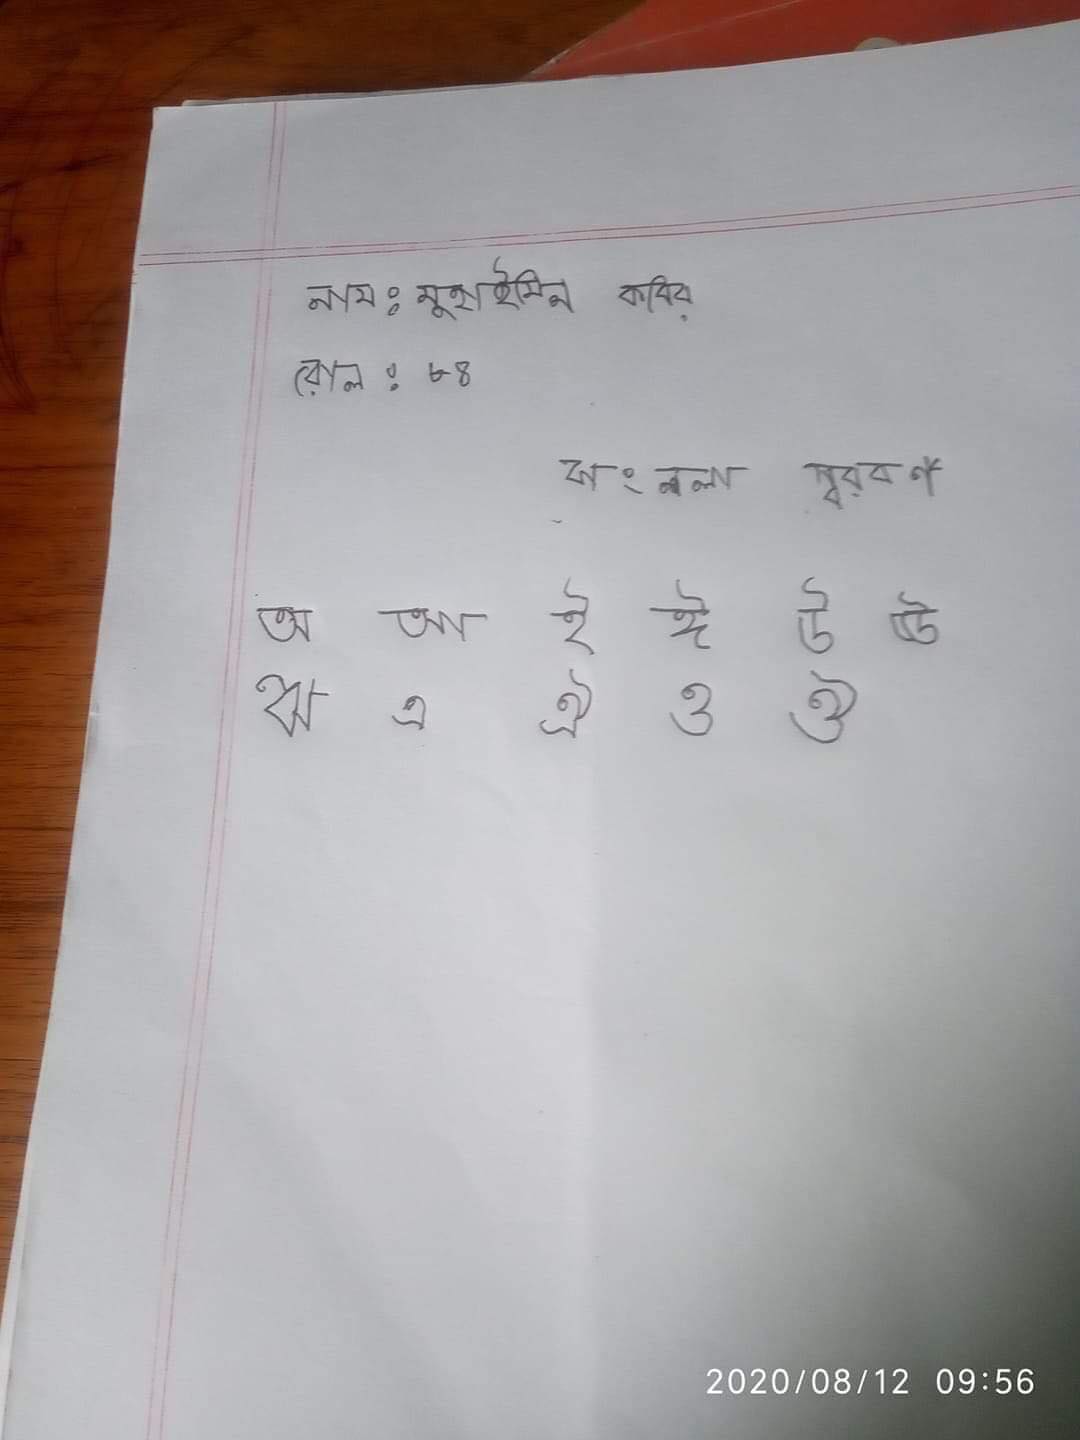 নামঃ মুহাইমিন কবির
রোল : ৮৪
বাংলা স্বরবর্ণ
অ আ ই ঈ উ ঊ
ঋ এ ঐ ও ঔ
2020/08/12 09:56